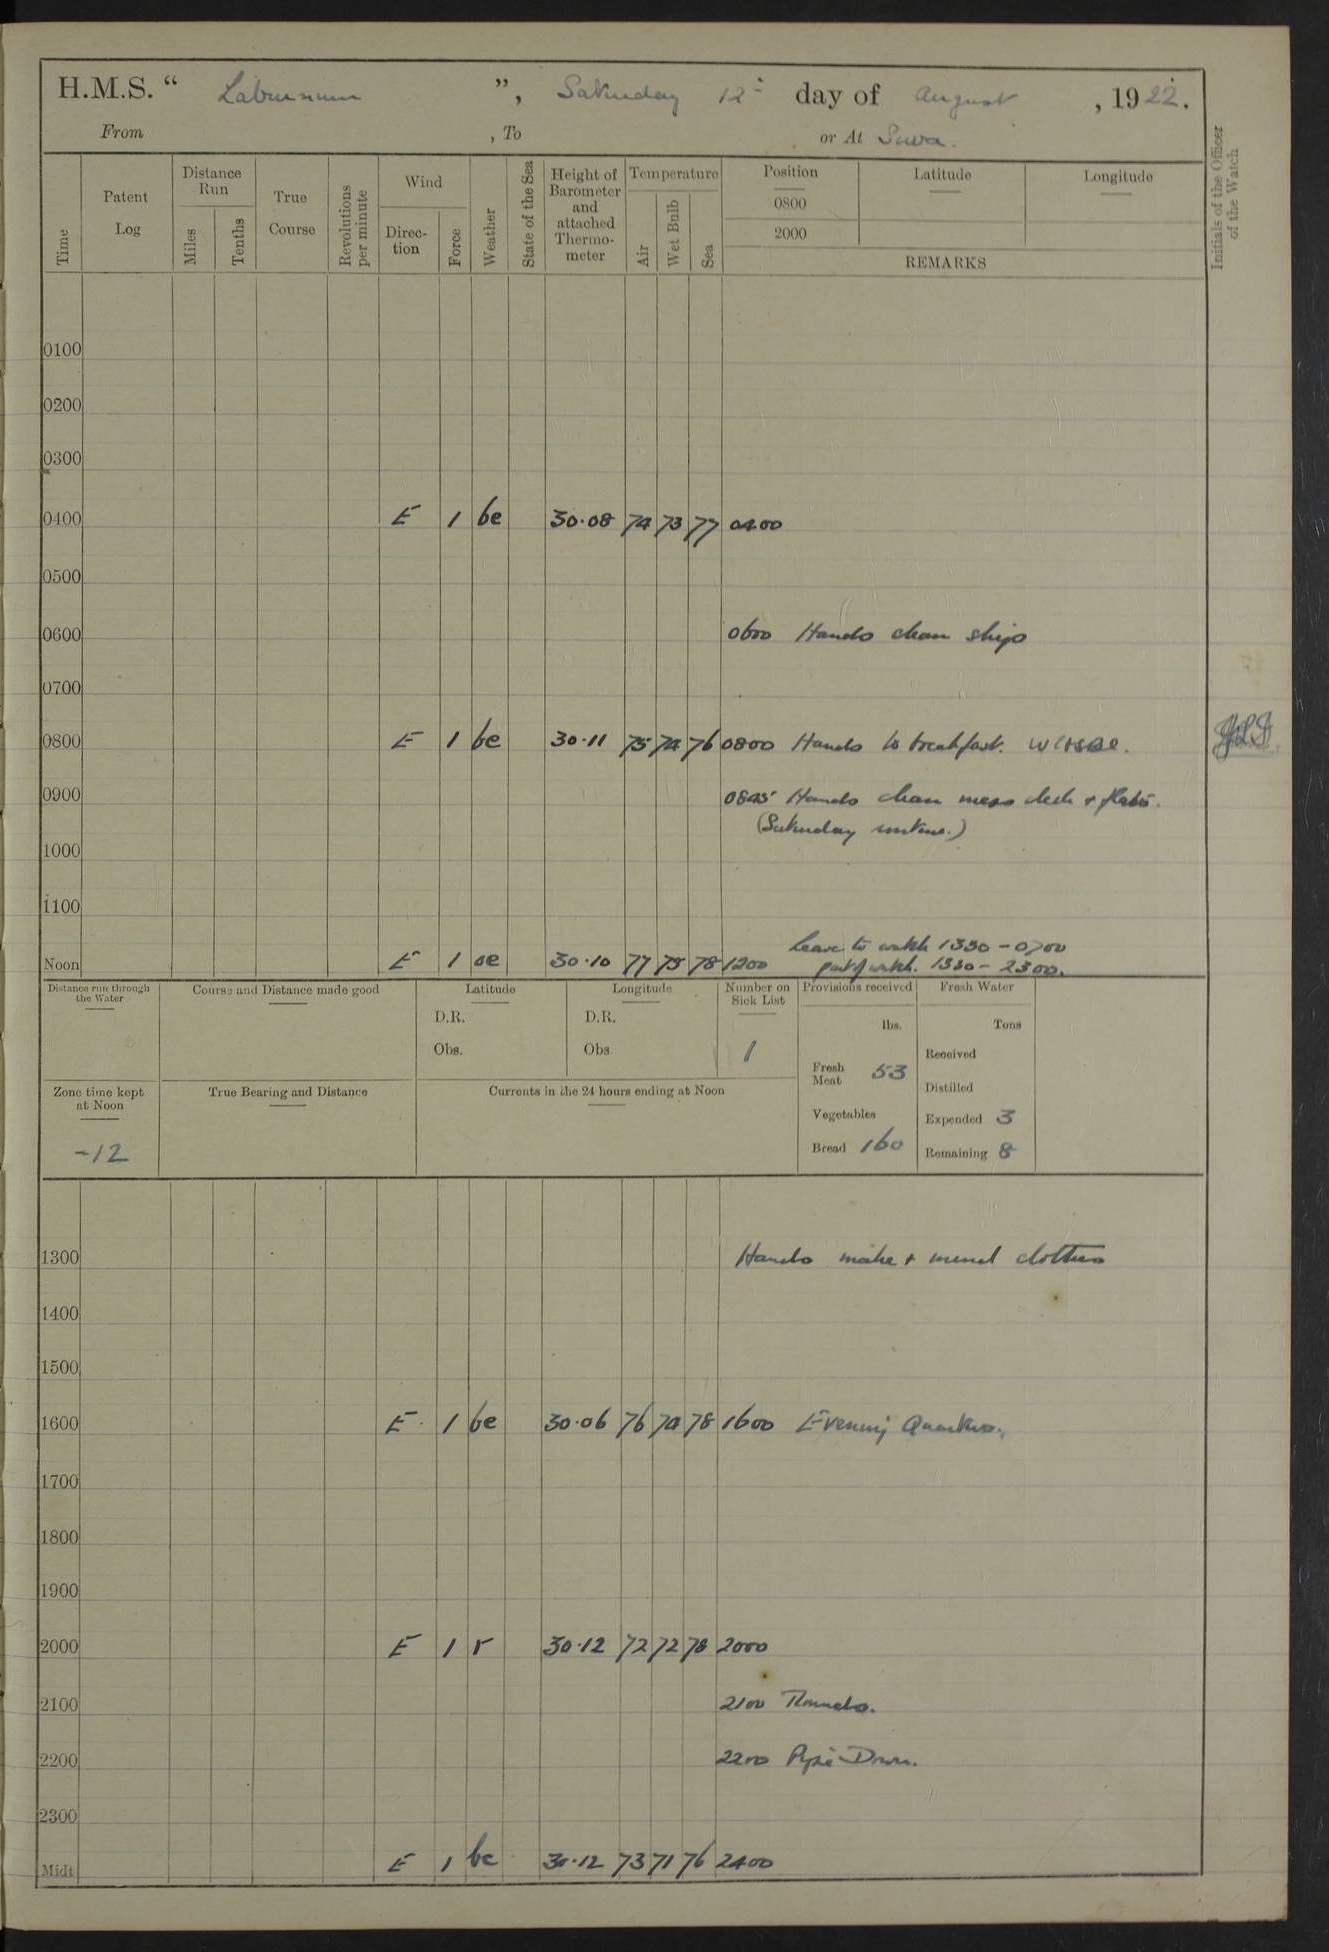 H.M.S. “ Laburnum ”, Saturday 12th day of August, 1922.
From , To or At Suva.
Time
Patent Log
Distance Run
Miles
Tenths
True Course
Revolutions per minute
Wind
Direction
Force
Weather
State of the Sea
Height of Barometer and attached Thermometer
Temperature
Air
Wet Bulb
Sea
Position
0800
2000
Latitude
Longitude
REMARKS
Initials of the Officer of the Watch
0100
0200
0300
0400 E 1 bc 30·08 74 73 77 0400
0500
0600 0600 Hands clean ship
0700
0800 E 1 bc 30·11 75 74 76 0800 Hands to breakfast.
0900 0845 Hands clean mess deck + flats.
(Saturday routine.)
1000
1100
Leave to watch 1330 - 0700
Noon E 1 bc 30·10 77 75 78 1200 part of watch. 1330 - 2300.
Distance run through the Water
Course and Distance made good
Latitude
D.R.
Obs.
Longitude
D.R.
Obs.
Number on Sick List
1
Provisions received
lbs.
Fresh Meat 53
Vegetables
Bread 160
Fresh Water
Tons
Received
Distilled
Expended 3
Remaining 8
Zone time kept at Noon
-12
True Bearing and Distance
Currents in the 24 hours ending at Noon
1300 Hands make + mend clothes
1400
1500
1600 E 1 bc 30·06 76 74 78 1600 Evening Quarters.
1700
1800
1900
2000 E 1 r 30·12 72 72 78 2000
2100 2100 Rounds.
2200 2200 Pipe Down.
2300
Midt E 1 bc 30·12 73 71 76 2400